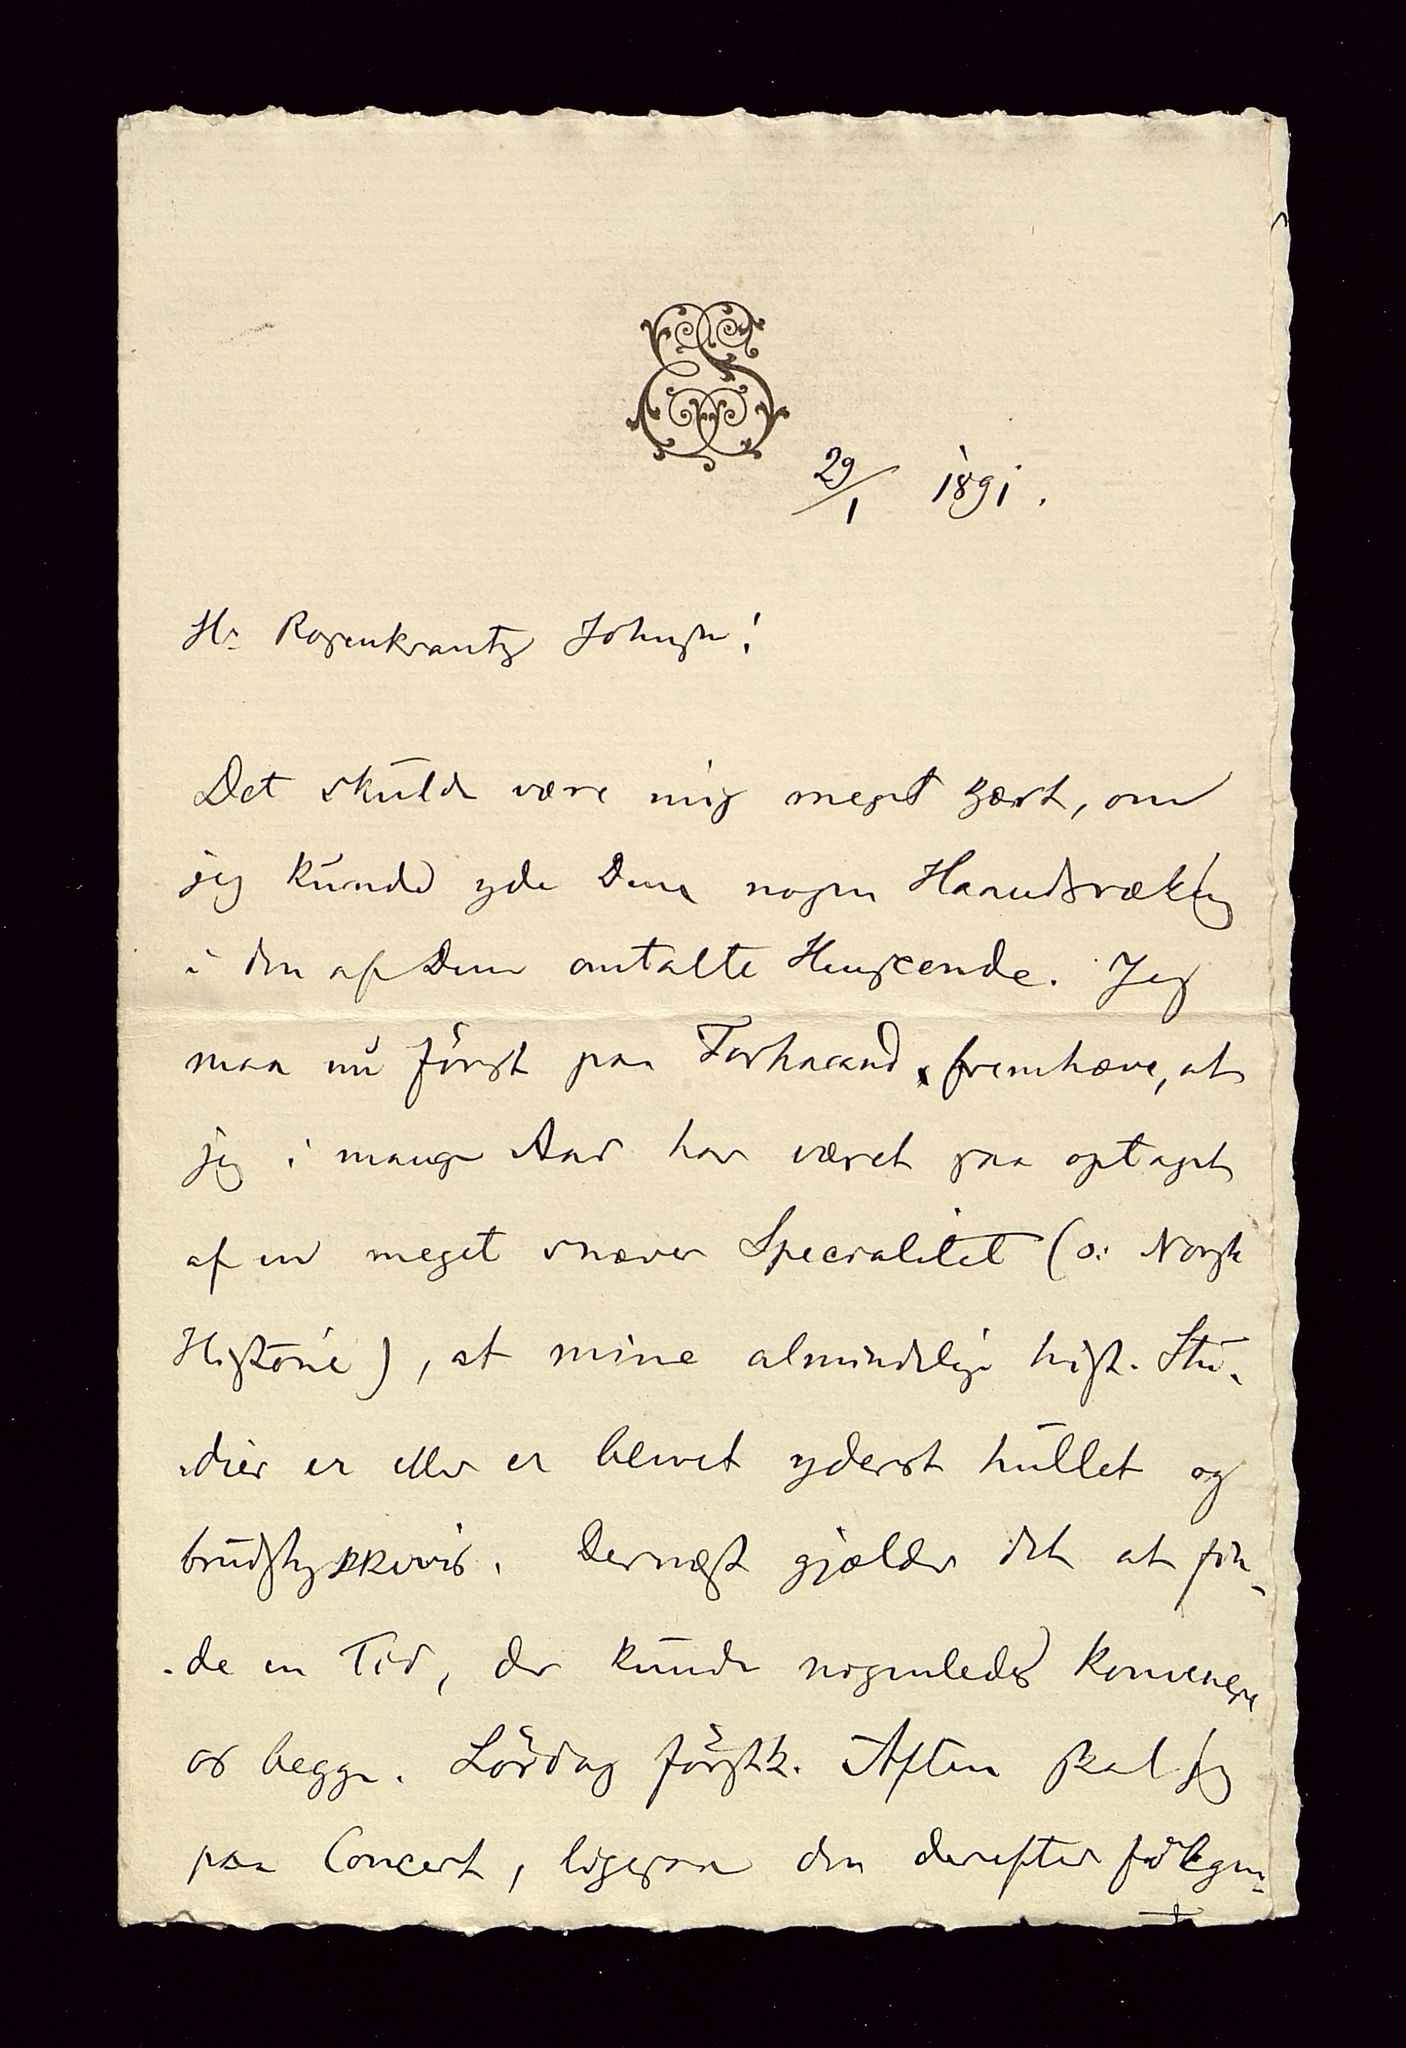 29/1 1891.
Hr Rosenkrantz Johnsen!
Det skulde være mig meget kjært, om
jeg kunde yde Dem nogen Haandsrækning
i den af Dem omtalte Henseende. Jeg
maa nu först paa Forhaand fremhæve, at
jeg i mange Aar har været saa optaget
af en meget snæver Specialitet (ɔ: Norsk
Historie), at mine almindelige hist. Stu-
-dier er eller er blevet yderst hullet og
brudstykkevis. Dernæst gjælder det at fin-
-de en Tid, der kunde nogenledes konvenere
os begge. Lördag förstk. Aften skal jeg
paa Concert, ligesaa den derefter fölgen-